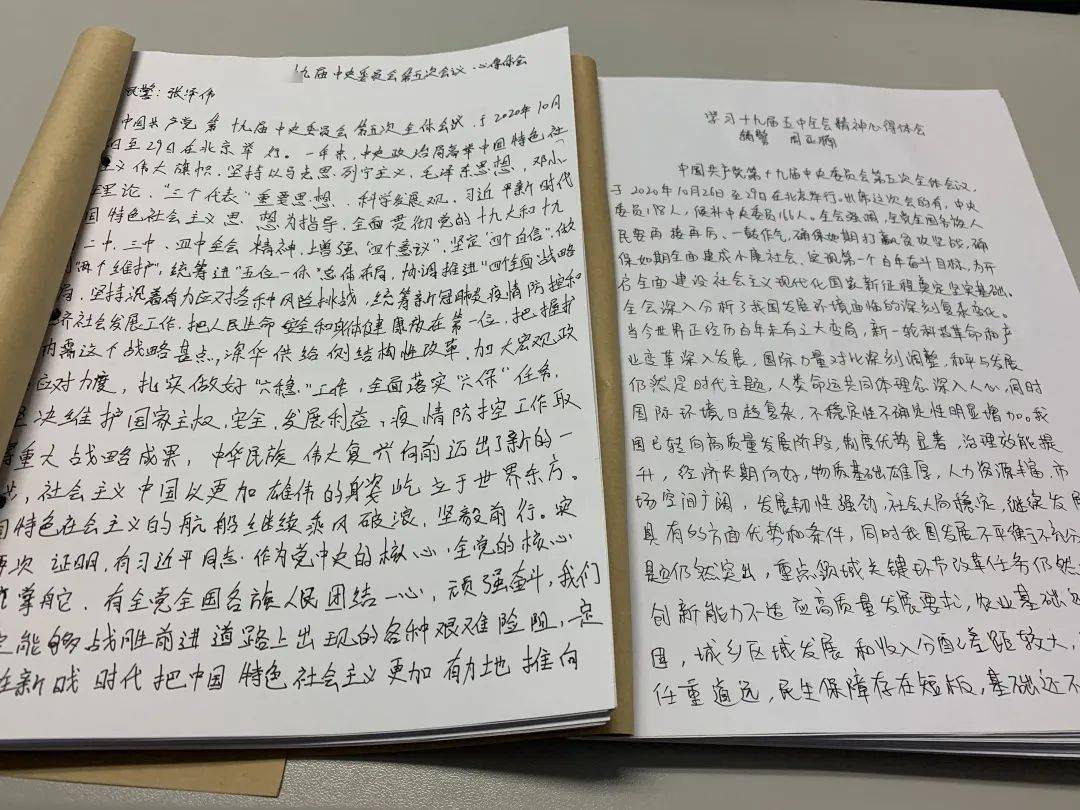 九届中央委员会第五次会议心得体会
警：张泽伟
中国共产党第十九届中央委员会第五次全体会议，于2020年10月
日至29日在北京举行。一年来，中央政治局高举中国特色社
主义伟大旗帜，坚持以马克思列宁主义、毛泽东思想、邓小
理论、“三个代表”重要思想、科学发展观、习近平新时代
国特色社会主义思想为指导，全面贯彻党的十九大和十九
二中、三中、四中全会精神，增强“四个意识”、坚定“四个自信”、做
“两个维护”，统筹进“五位一体”总体布局，协调推进“四个全面”战略
局，坚持沉着有力应对各种风险挑战，统筹新冠肺炎疫情防控和
济社会发展工作，把人民生命安全和身体健康放在第一位，把握扩
内需这个战略基点，深华供给侧结构性改革，加大宏观政
应对力度，扎实做好“六稳”工作，全面落实“六保”任务，
坚决维护国家主权、安全、发展利益，疫情防控工作取
得重大战略成果，中华民族伟大复兴向前迈出了新的一
步，社会主义中国以更加雄伟的身姿屹立于世界东方。
国特色社会主义的航船继续乘风破浪，坚毅前行。实
再次证明，有习近平同志作为党中央的核心、全党的核心
掌舵，有全党全国各族人民团结一心，顽强奋斗，我们
定能够战胜前进道路上出现的各种艰难险阻，一定
在新时代把中国特色社会主义更加有力地推向
学习十九届五中全会精神心得体会
辅警 周正
中国共产党第十九届中央委员会第五次全体会议，
于2020年10月26日至29日在北京举行。出席这次会的有，中央
委员198人，候补中央委员166人。全会强调，全党全国各族人
民要再接再厉、一鼓作气，确保如期打赢脱贫攻坚战，确
保如期全面建成小康社会、实现第一个百年奋斗目标，为开
启全面建设社会主义现代化国家新征程奠定坚实基础。
全会深入分析了我国发展环境面临的深刻复杂变化。
当今世界正经历百年未有之大变局，新一轮科技革命和产
业变革深入发展，国际力量对比深刻调整，和平与发展
仍然是时代主题，人类命运共同体理念深入人心，同时
国际环境日趋复杂，不稳定性不确定性明显增加。我
国已转向高质量发展阶段，制度优势显著，治理效能提
升，经济长期向好，物质基础雄厚，人力资源丰富，市
场空间广阔，发展韧性强劲，社会大局稳定，继续发展
具有的方面优势和条件，同时我国发展不平衡不充分
题仍然突出，重点领域关键环节改革任务仍然
创新能力不适应高质量发展要求，农业基础还
固，城乡区域发展和收入分配差距较大，
任重道远，民生保障存在短板，基础还不